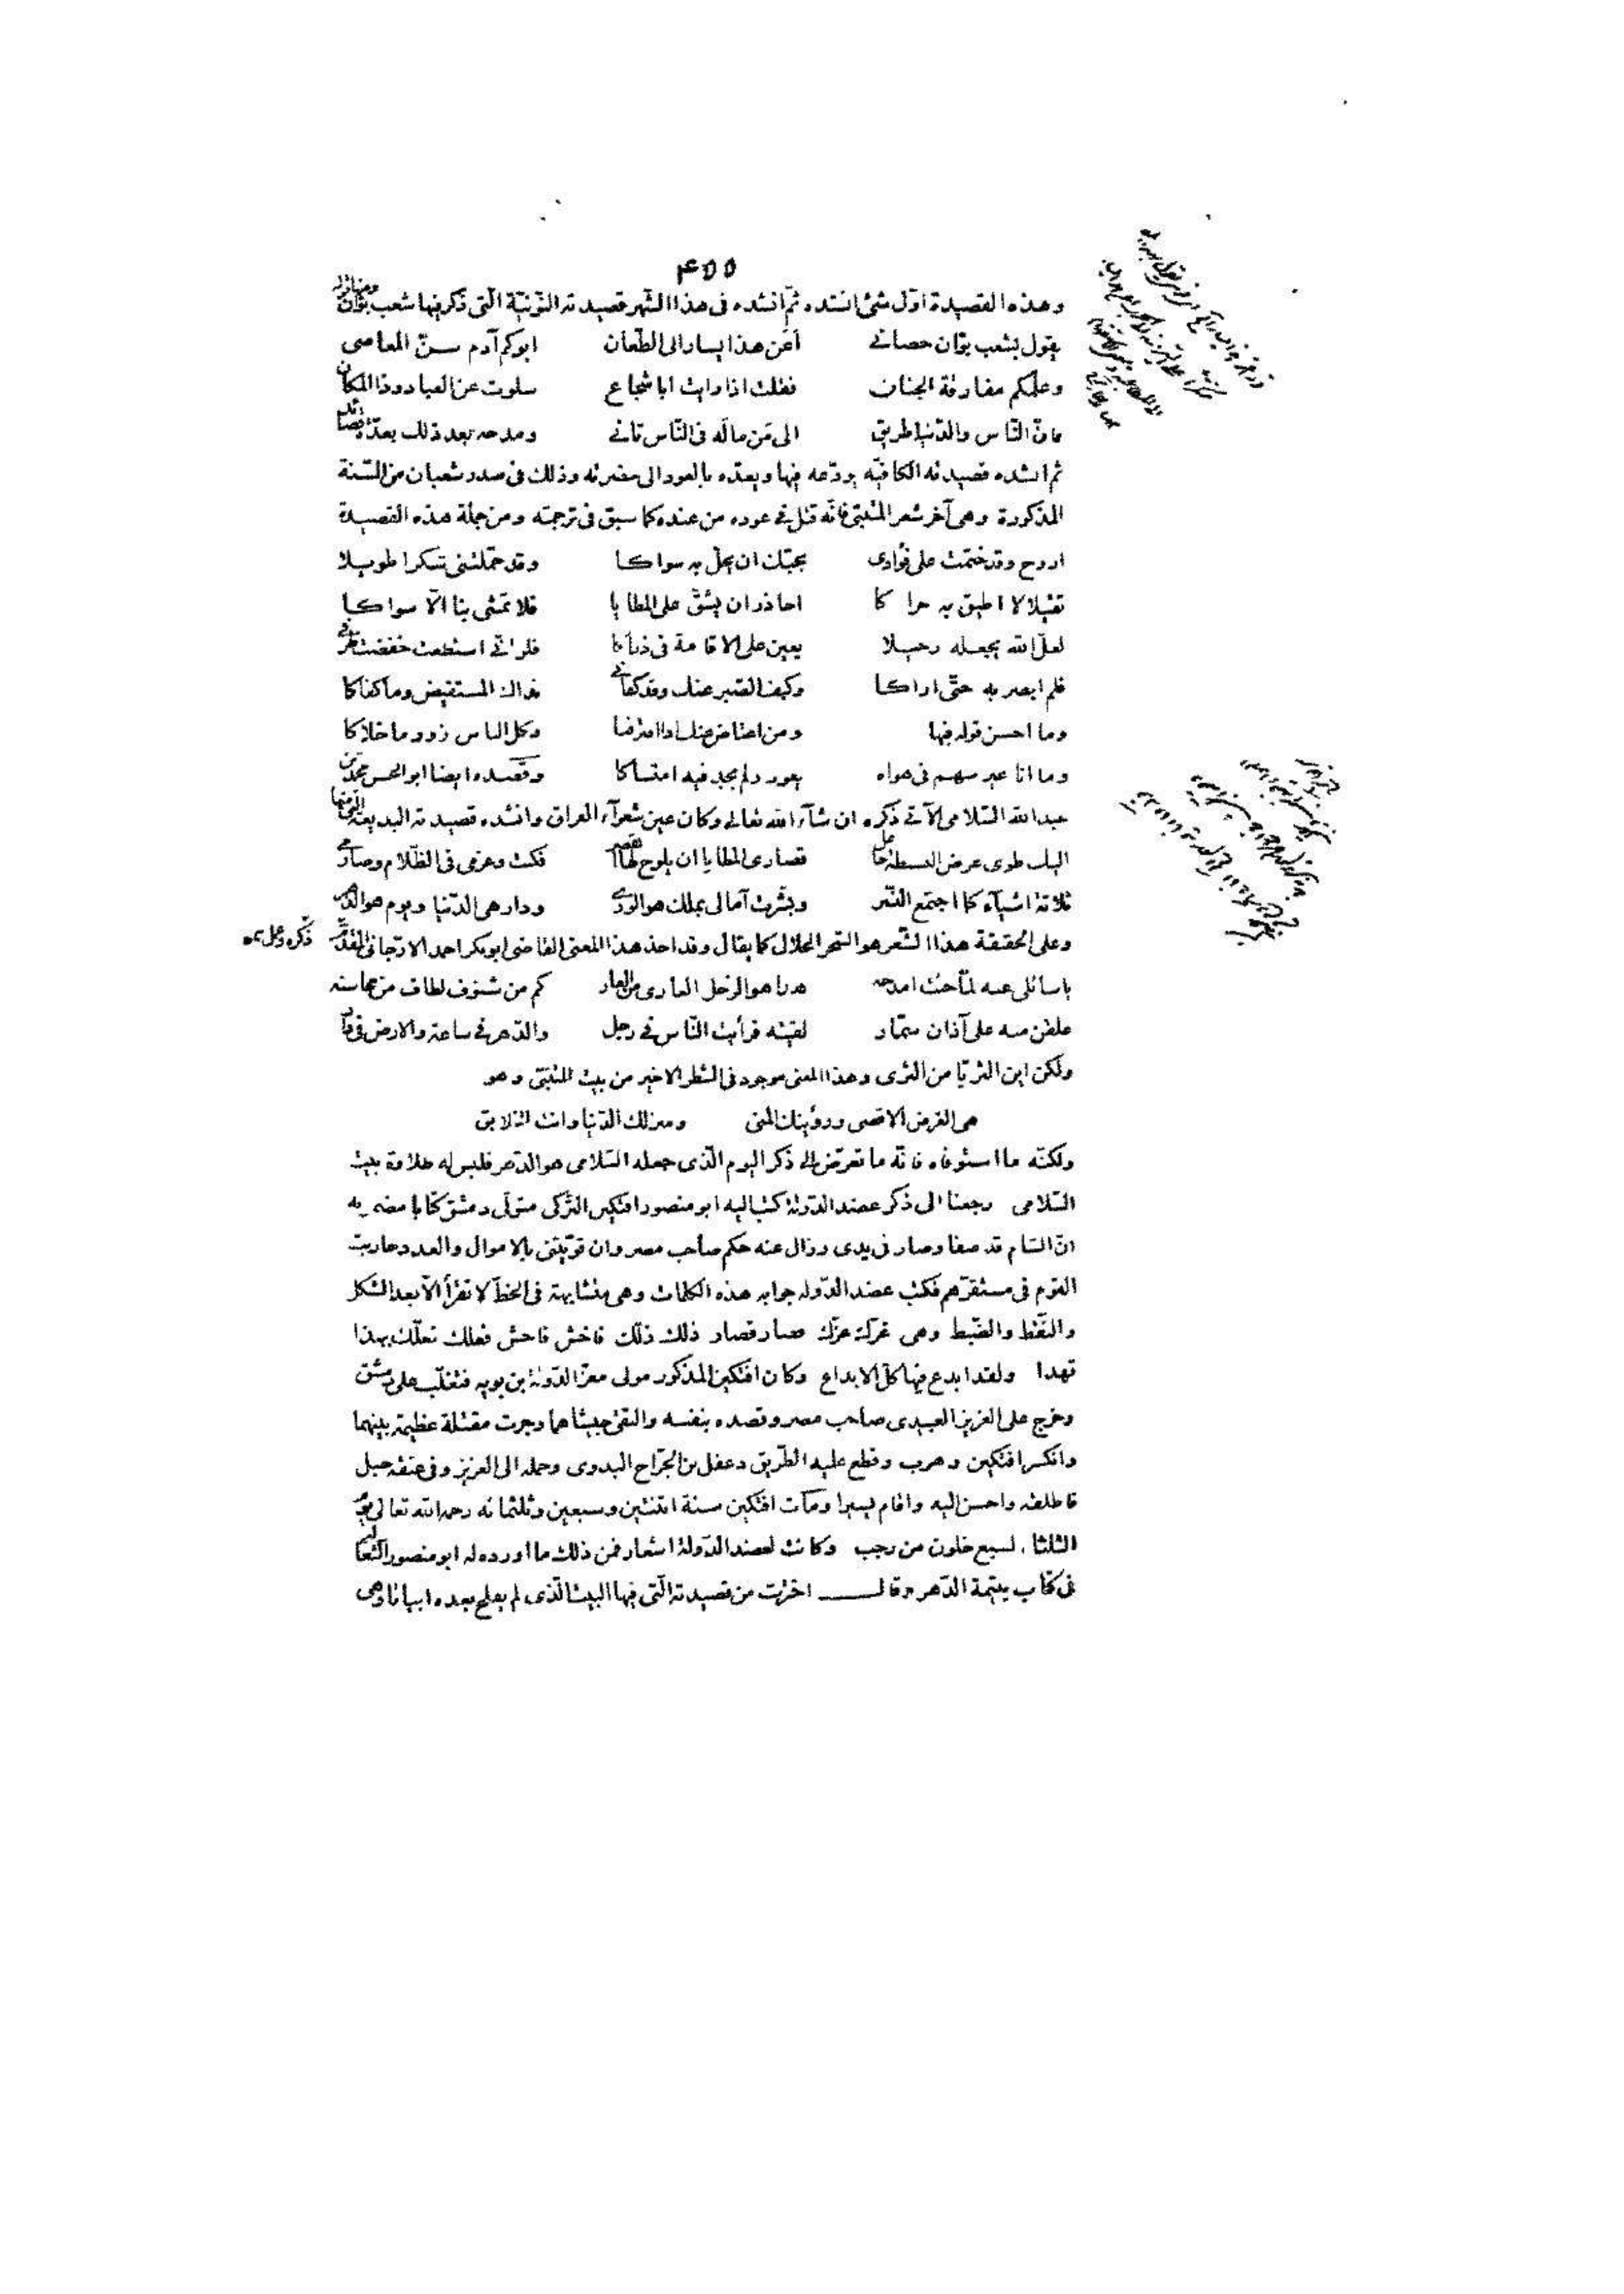 ۴۵۵
وهذه القصيدة اوّل شئ انشده ثمّ انشده فى هذا الشّهر قصيدته النّونيّة الّتى ذكر فيها شعب بوّان ومنها قوله
يقول بشعب بوّان حصانى أعَن هذا يسار الى الطّعان ابوكم آدم سنّ المعاصى
وعلّمكم مفارقة الجنان فقلت اذا رايت ابا شجاع سلوت عن العباد وذا المكان
فانّ النّاس والدّنيا طريق الى مَن ماله فى النّاس ثانى ومدحه بعد ذلك بعدّة قصائد
ثم انشده قصيدته الكافيّه يودّعه فيها ويعدّه بالعود الى حضرته وذلك فى صدر شعبان من السّنة
المذكورة وهى آخر شعر المتنبّى فانّه قتل فى عوده من عنده كما سبق فى ترجمته ومن جملة هذه القصيدة
اروح وقد ختمت على فؤادى بحبّك ان يحلّ به سواكا وقد حمّلتنى شكرا طويلا
ثقيلا لا اطيق به حراكا احاذر ان يشقّ على المطايا فلا تمشى بنا الّا سواكا
لعلّ الله يجعله رحيلا يعين على الاقامة فى ذراكا فلو انّى استطعت خفضت طرفى
فلم ابصر به حتّى اراكا وكيف الصّبر عنك وقد كفانى نداك المستفيض وما كفاكا
وما احسن قوله فيها ومن اعتاض عنك اذا افترقنا وكل الناس زور ما خلاكا
وما انا غير سهم فى هواء يعود ولم يجد فيه امتساكا وقصده ايضا ابو الحسن محمد بن
عبد الله السّلامى الآتى ذكره ان شآء الله تعالى وكان عين شعرآء العراق وانشده قصيدته البديعة الّتى منها
اليك طوى عرض البسيطة جاعل قصارى المطايا ان يلوح لها القصر فكنت وعزمى فى الظّلام وصارمى
ثلاثة اشيآء كما اجتمع النّسر وبشّرت آمالى بملك هو الورى ودار هى الدّنيا ويوم هو الدّهر
وعلى الحقيقة هذا الشّعر هو السّحر الحلال كما يقال وقد اخذ هذا المعنى القاضى ابو بكر احمد الارّجانى المقدّم ذكره وعمل
يا سائلى عنه لمّا جئت امدحه هذا هو الرّجل العارى من العار كم من شنوف لطاف من محاسنه
علقن منه على آذان سمّار لقيته فرأيت النّاس فى رجل والدّهر فى ساعة والارض فى دار
ولكن اين الثريّا من الثرى وهذا المعنى موجود فى الشطر الاخير من بيت المتنبّى وهو
هى الغرض الاقصى ورؤيتك المنى ومنزلك الدّنيا وانت الخلايق
ولكنّه ما استوفاه فانّه ما تعرّض الى ذكر اليوم الّذى جعله السّلامى هو الدّهر فليس له طلاوة بيت
السّلامى رجعنا الى ذكر عضد الدّولة كتب اليه ابو منصور افتكين التّركى متولّى دمشق كتابا مضمونه
انّ الشام قد صفا وصار فى يدى وزال عنه حكم صاحب مصر وان قوّيتنى بالاموال والعدد حاربت
القوم فى مستقرّهم فكتب عضد الدّوله جوابه هذه الكلمات وهى متشابهة فى الخطّ لا تقرأ الّا بعد الشّكل
والنّقط والضّبط وهى غرّك عزّك فصار قصار ذلك ذلّك فاخش فاحش فعلك فعلّك بهذا
تهدا ولقد ابدع فيها كلّ الابداع وكان افتكين المذكور مولى معزّ الدّولة بن بويه فتغلّب على دمشق
وخرج على العزيز العبيدى صاحب مصر وقصده بنفسه والتقى جيشاهما وجرت مقتلة عظيمة بينهما
وانكسر افتكين وهرب وقطع عليه الطّريق دغفل بن الجرّاح البدوى وحمله الى العزيز وفى عنقه حبل
فاطلقه واحسن اليه واقام يسيرا ومات افتكين سنة اثنتين وسبعين وثلثمائه رحمه الله تعالى يوم
الثلثاء لسبع خلون من رجب وكانت لعضد الدّولة اشعار فمن ذلك ما اورده له ابو منصور الثعالبى
فى كتاب يتيمة الدّهر وقال اخترت من قصيدته الّتى فيها البيت الّذى لم يفلح بعده ابياتا وهى